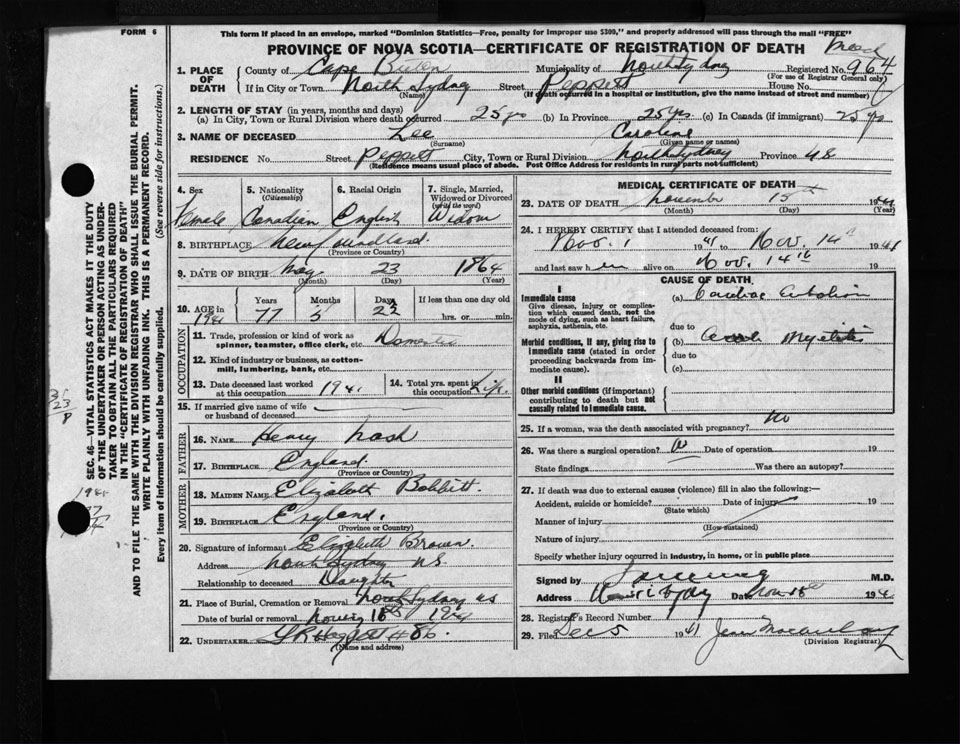 FORM 6
This form if placed in an envelope, marked "Dominion Statistics—Free, penalty for improper use $300," and properly addressed will pass through the mail "FREE"
PROVINCE OF NOVA SCOTIA—CERTIFICATE OF REGISTRATION OF DEATH
1. PLACE OF DEATH County of Cape Breton Municipality of North Sydney Registered No. 964
(For use of Registrar General only)
If in City or Town North Sydney Street Peppett House No.
(Name) (If death occurred in a hospital or institution, give the name instead of street and number)
2. LENGTH OF STAY (in years, months and days)
(a) In City, Town or Rural Division where death occurred 25 yrs (b) In Province 25 yrs (c) In Canada (if immigrant) 25 yrs
3. NAME OF DECEASED Lee Caroline
(Surname) (Given name or names)
RESIDENCE No. Street Peppett City, Town or Rural Division North Sydney Province
(Residence means usual place of abode. Post Office Address for residents in rural parts not sufficient)
SEC. 46—VITAL STATISTICS ACT MAKES IT THE DUTY
OF THE UNDERTAKER OR PERSON ACTING AS UNDER-
TAKER TO OBTAIN ALL THE PARTICULARS REQUIRED
IN THE "CERTIFICATE OF REGISTRATION OF DEATH"
AND TO FILE THE SAME WITH THE DIVISION REGISTRAR WHO SHALL ISSUE THE BURIAL PERMIT.
WRITE PLAINLY WITH UNFADING INK. THIS IS A PERMANENT RECORD.
Every item of information should be carefully supplied. (See reverse side for instructions.)
4. Sex 5. Nationality (Citizenship) 6. Racial Origin 7. Single, Married, Widowed or Divorced (write the word)
Female Canadian English Widow
8. BIRTHPLACE Newfoundland.
(Province or Country)
9. DATE OF BIRTH May 23 1864
(Month) (Day) (Year)
10. AGE in Years Months Days If less than one day old
1941 77 5 22 hrs. or min.
OCCUPATION
11. Trade, profession or kind of work as Domestic
spinner, teamster, office clerk, etc.
12. Kind of industry or business, as cotton-
mill, lumbering, bank, etc.
13. Date deceased last worked at this occupation 1941 14. Total yrs. spent in this occupation Life
15. If married give name of wife
or husband of deceased
FATHER
16. NAME Henry Nash
17. BIRTHPLACE England
(Province or Country)
MOTHER
18. MAIDEN NAME Elizabeth Bobbitt.
19. BIRTHPLACE England.
(Province or Country)
20. Signature of informant Elizabeth Brown.
Address North Sydney NS
Relationship to deceased Daughter
21. Place of Burial, Cremation or Removal North Sydney NS
Date of burial or removal 1941
22. UNDERTAKER
(Name and address)
MEDICAL CERTIFICATE OF DEATH
23. DATE OF DEATH November 15th 1941
(Month) (Day) (Year)
24. I HEREBY CERTIFY that I attended deceased from:
Nov. 1 1941 to Nov. 14th 1941
and last saw h alive on Nov. 14th 19
CAUSE OF DEATH
I
Immediate cause (a) Cardiac
Give disease, injury or complication which caused death, not the mode of dying, such as heart failure, asphyxia, asthenia, etc.
due to
Morbid conditions, if any, giving rise to immediate cause (stated in order proceeding backwards from immediate cause). (b) Myelitis
due to
(c)
II
Other morbid conditions (if important) contributing to death but not causally related to immediate cause.
25. If a woman, was the death associated with pregnancy? No
26. Was there a surgical operation? Date of operation 19
State findings Was there an autopsy?
27. If death was due to external causes (violence) fill in also the following:
Accident, suicide or homicide? Date of injury 19
(State which)
Manner of injury
(How sustained)
Nature of injury
Specify whether injury occurred in industry, in home, or in public place
Signed by M.D.
Address Date Nov 18th 1941
28. Registrar's Record Number
29. Filed Dec 5 1941
(Division Registrar)